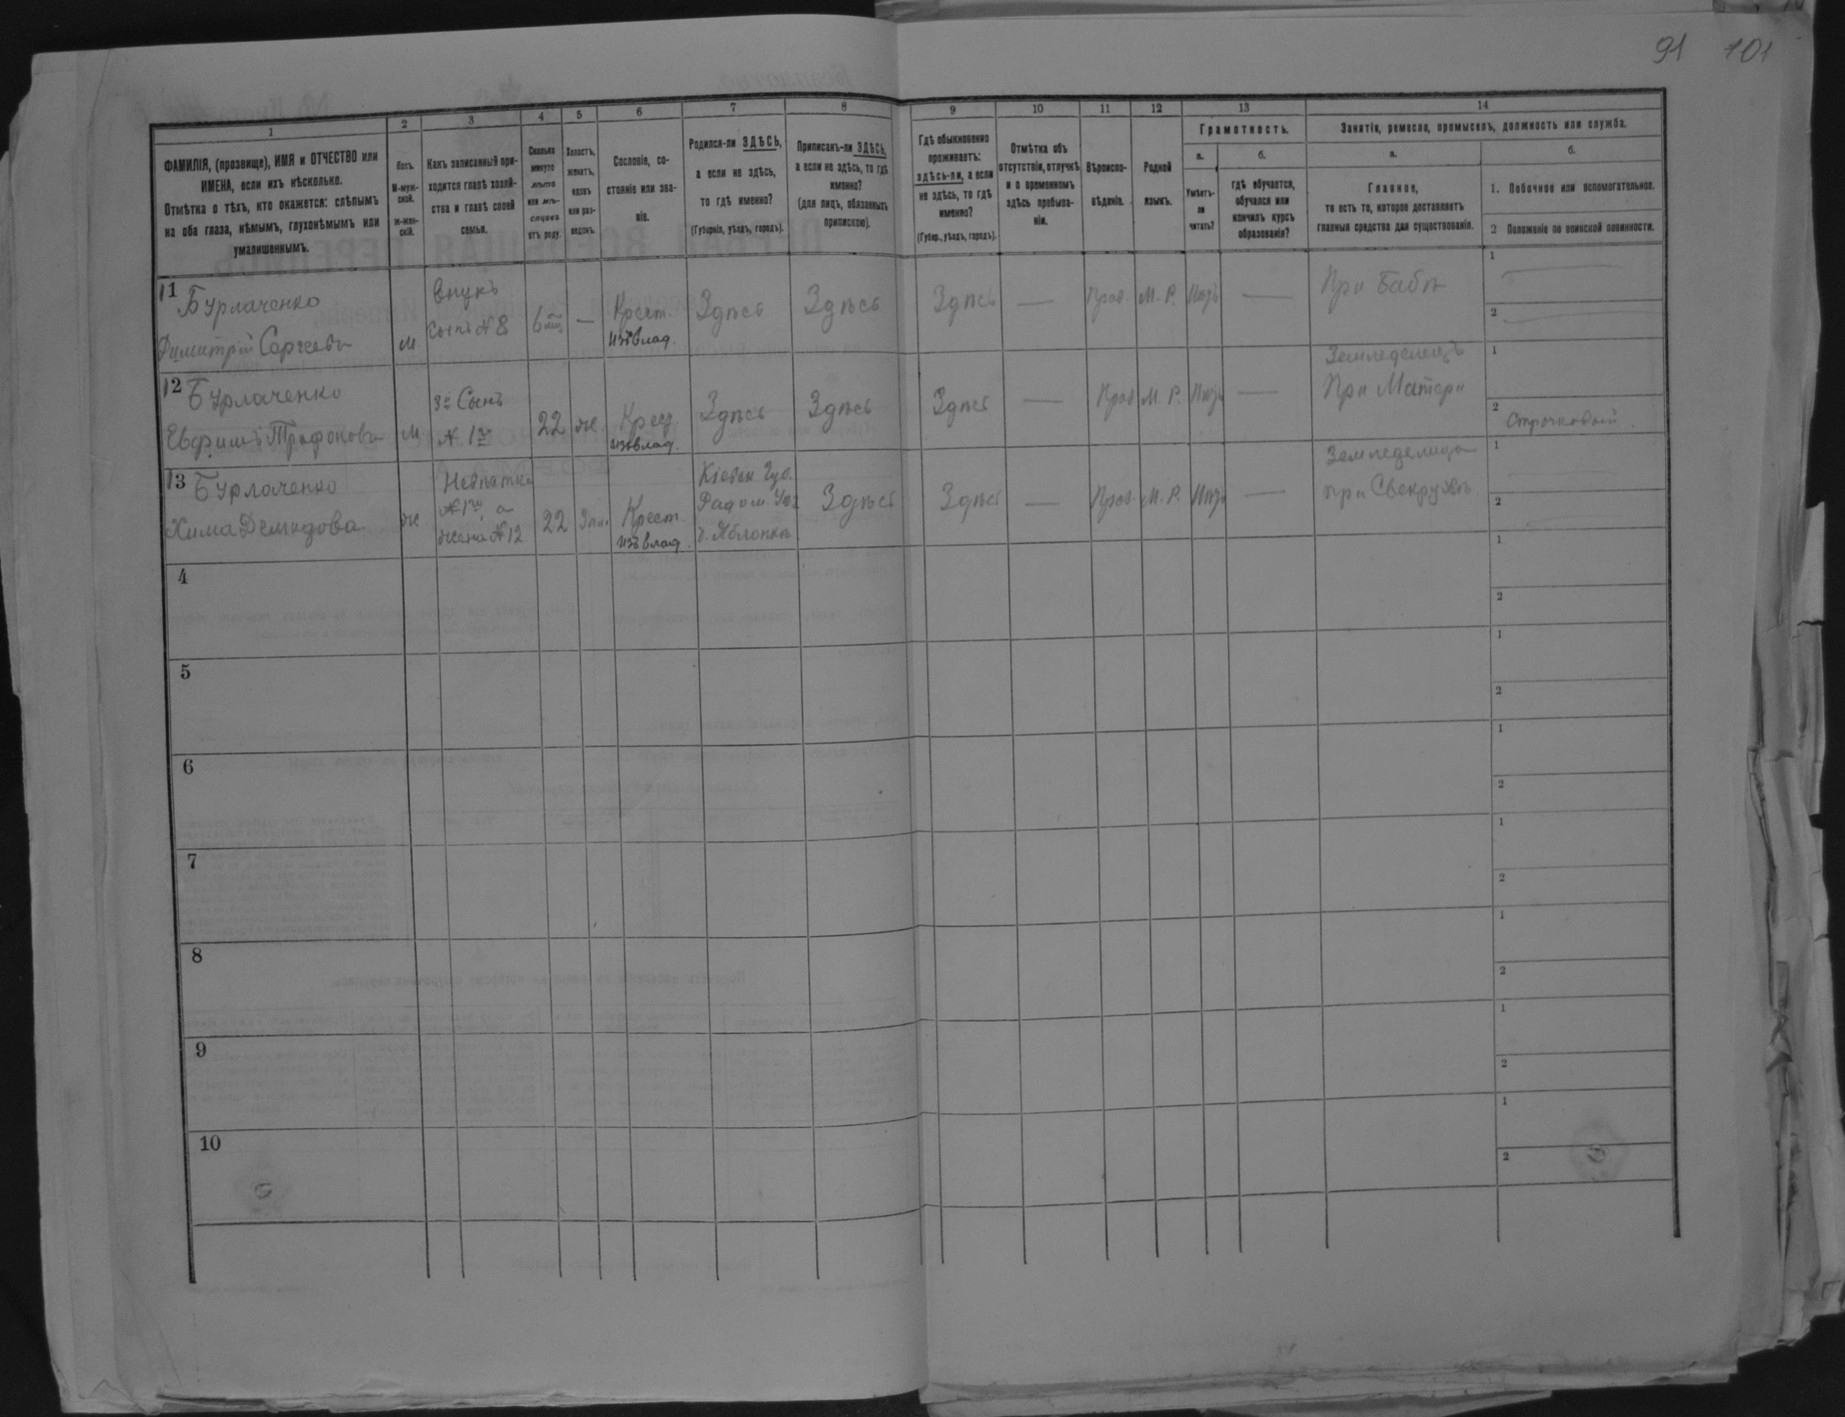 91 101
1
2
3
4
5
6
7
8
9
10
11
12
13
14
ФАМИЛІЯ, (прозвище), ИМЯ и ОТЧЕСТВО или
ИМЕНА, если ихъ нѣсколько.
Отмѣтка о тѣхъ, кто окажется: слѣпымъ
на оба глаза, нѣмымъ, глухонѣмымъ или
умалишеннымъ.
Полъ.
М-муж-
ской.
Ж-жен-
скій.
Какъ записанный при-
ходится главѣ хозяй-
ства и главѣ своей
семьи.
Сколько
минуло
лѣтъ
или мѣ-
сяцевъ
отъ роду.
Холостъ,
женатъ,
вдовъ
или раз-
веденъ.
Сословіе, со-
стояніе или зва-
ніе.
Родился-ли ЗДѢСЬ,
а если не здѣсь,
то гдѣ именно?
(Губернія, уѣздъ, городъ).
Приписанъ-ли ЗДѢСЬ,
а если не здѣсь, то гдѣ
именно?
(для лицъ, обязанныхъ
припискою).
Гдѣ обыкновенно
проживаетъ:
здѣсь-ли, а если
не здѣсь, то гдѣ
именно?
(Губер., уѣздъ, городъ).
Отмѣтка объ
отсутствіи, отлучкѣ
и о временномъ
здѣсь пребыва-
ніи.
Вѣроиспо-
вѣданіе.
Родной
языкъ.
Грамотность.
а.
Умѣетъ-
ли
читать?
б.
гдѣ обучается,
обучался или
кончилъ курсъ
образованія?
Занятіе, ремесло, промыселъ, должность или служба.
а.
Главное,
то есть то, которое доставляетъ
главныя средства для существованія.
б.
1. Побочное или вспомогательное.
2 Положеніе по воинской повинности.
11 Бурлаченко
Димитрій Сергеевъ
м
Внукъ
Сынъ № 8
6
—
Крест.
изъ влад.
Здѣсь
Здѣсь
Здѣсь
—
Прав.
М. Р.
—
При Бабѣ
1
2
12 Бурлаченко
Евфимъ Трофоновъ
м
3й Сынъ
№ 1го
22
ж
Крест
изъ влад.
Здѣсь
Здѣсь
Здѣсь
—
Прав
М. Р.
—
Земледелецъ
При Матери
1
2
13 Бурлаченко
Хима Демидова
ж
Невѣстка
№ 1го, а
жена № 12
22
Зам.
Крест.
изъ влад.
Кіевск Губ.
Радом Уез
д. Яблонка
Здѣсь
Здѣсь
—
Прав
М. Р.
—
Земледелица
при Свекрухѣ
1
2
4
1
2
5
1
2
6
1
2
7
1
2
8
1
2
9
1
2
10
1
2